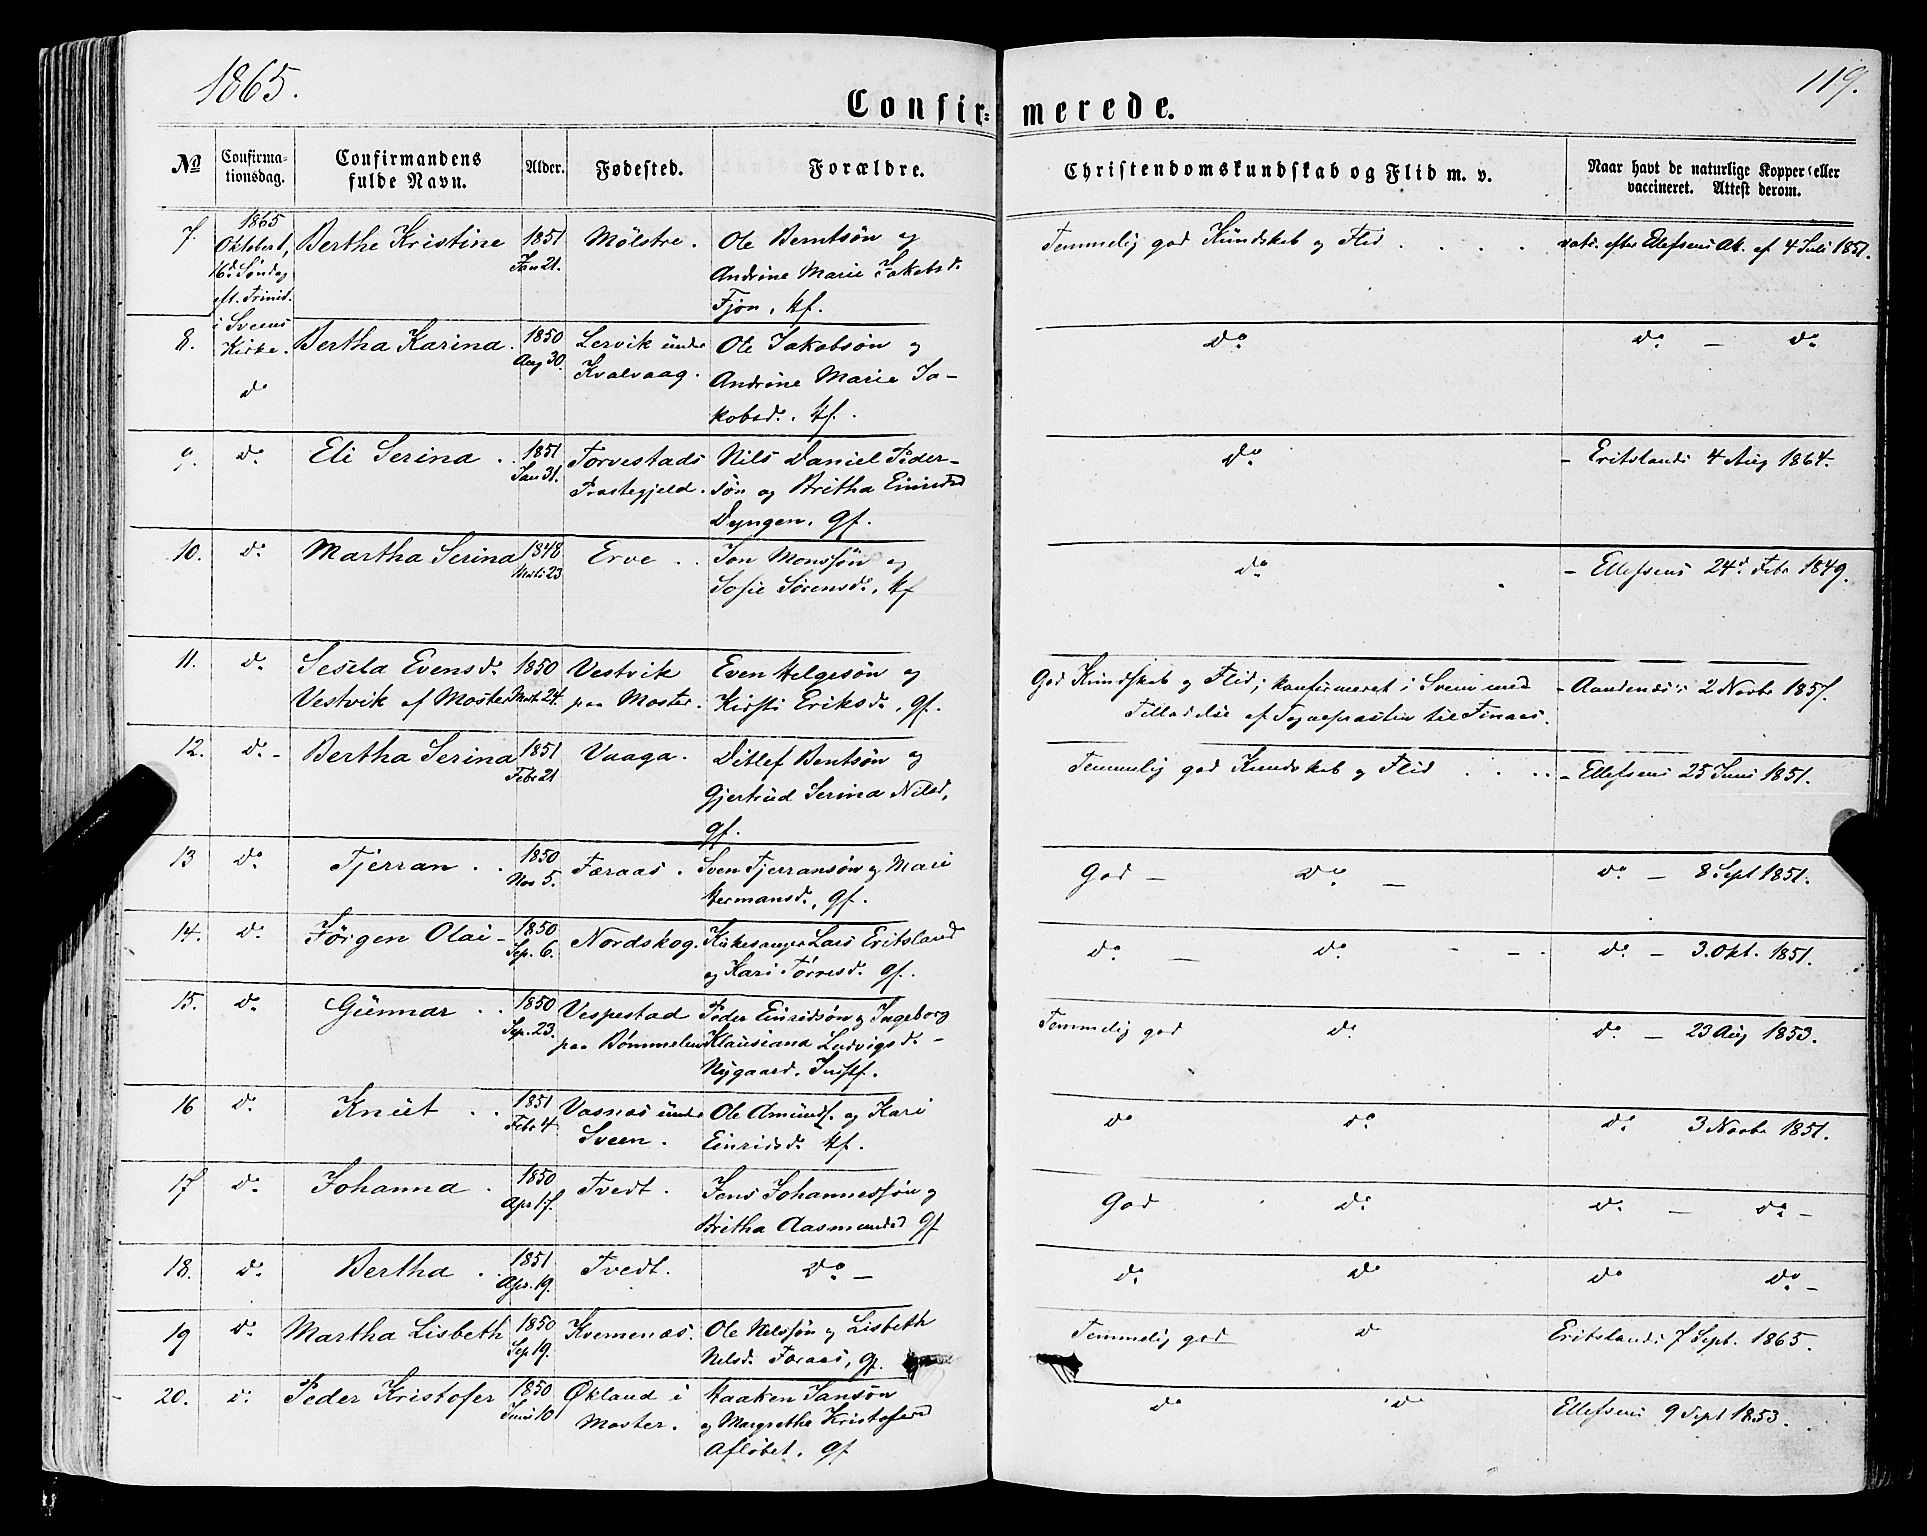 1865.
119.
Confir- merede.
No
Confirma-
tionsdag.
Confirmandens
fulde Navn.
Alder.
Fødested.
Forældre.
Christendomskundskab og Flid m. v.
Naar havt de naturlige Kopper eller
vaccineret. Attest derom.
7. 1865 Berthe Kristine 1851 Mølstre. Ole Berntsøn og Temmelig god Kundskab og Flid . . . . vats. efter Ellefsens At. af 4 Juli 1851.
Oktober 1, Jan 21. Andrine Marie Jakobsd.
16de Søndag Fjon, kf.
eft. Trinit.
i Sveens
Kirke.
8. do Bertha Karina. 1850 Lervik under Ole Jakobsøn og do do – do
Aug 30. Kvalvaag. Andrine Marie Ja-
kobsd. kf.
9. do Eli Serina . . 1851 Torvestads Nils Daniel Peder- do – Eritslands 4 Aug 1864.
Jan 31. Prestegjeld. søn og Britha Einarsd
Dyngen, gf.
10. do Martha Serina 1848 Erve . . Jon Monssøn og do – Ellefsens 24d Febr 1849.
23 Sofie Sørensd., kf
11. do Sesela Evensd. 1850 Vestvik Even Helgesøn og God Kundskab og Flid; konfirmeret i Sveen med – Aandenæs's 2 Novbr 1857.
Vestvik af Moster 24. paa Moster. Kirsti Eriksd., gf. Tilladelse af Sognepresten til Finaas.
12. do – Bertha Serina 1851 Vaaga. Ditlef Bentsøn og Temmelig god Kundskab og Flid . . . . – Ellefsens 25 Juni 1851.
Febr 21 Gjertrud Serina Nilsd,
gf.
13 do Tjerran . . 1850 Færaas. Sven Tjerransøn og Mari God – do – do – 8 Sept 1851.
Nov 5. Hermansd., gf.
14. do Jørgen Olai – 1850 Nordskog. Kirkesanger Lars Eritsland do – do – . do – 3. Okt. 1851.
Sep. 6. og Kari Tørresd. gf.
15. do Gunnar . . 1850 Vespestad Peder Einridsøn og Ingeborg Temmelig god do do – 23 Aug 1853.
Sep. 23. paa Bømmelen Klausiana Ludvigsd. –
Nygaard. Instf.
16 do Knut . . 1851 Vasnæs under Ole Amunds. og Kari do do do 3 Novbr 1851.
Febr 4. Sveen. Einridsd. kf.
17 do Johanna . 1850 Tvedt. Jens Johannessøn og God do do – do –
Apr 17. Britha Aasmundsd gf
18. do Bertha . 1851 Tvedt. do – do do do do –
Apr. 19.
19 do Martha Lisbeth 1850 Kvemenæs. Ole Nelssøn og Lisbeth Temmelig god do Eritslands 7 Sept. 1865.
Sep 19. Nelsd. Foraas, gf.
20. do Peder Kristofer 1850 Økland i Haaken Jansøn do do Ellefsens 9 Sept 1853.
Juni 10 Moster. og Margrethe Kristofersd
Afløbet, gf